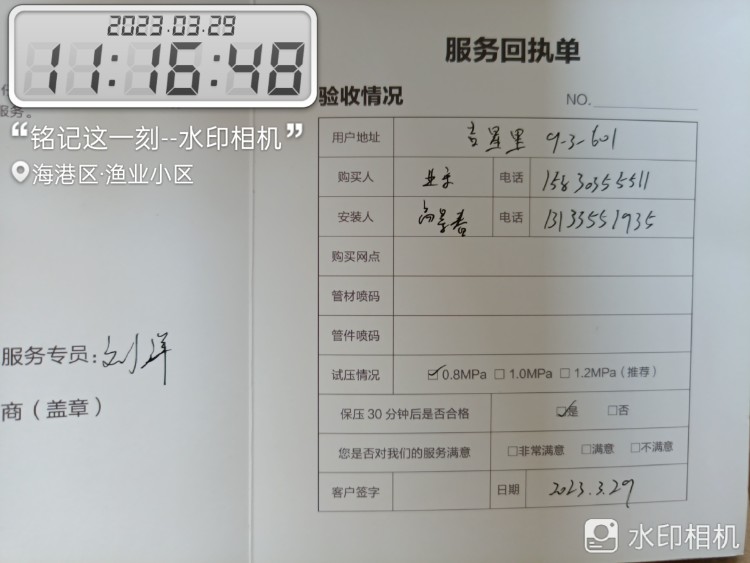 2023.03.29
11:16:48
“铭记这一刻--水印相机”
海港区·渔业小区
服务。
服务专员：刘洋
商（盖章）
服务回执单
验收情况
NO.
用户地址 吉星里 9-3-601
购买人 业主 电话 15830355511
安装人 电话 13133551935
购买网点
管材喷码
管件喷码
试压情况 ☑0.8MPa □1.0MPa □1.2MPa（推荐）
保压30分钟后是否合格 ☑是 □否
您是否对我们的服务满意 □非常满意 □满意 □不满意
客户签字 日期 2023.3.29
水印相机